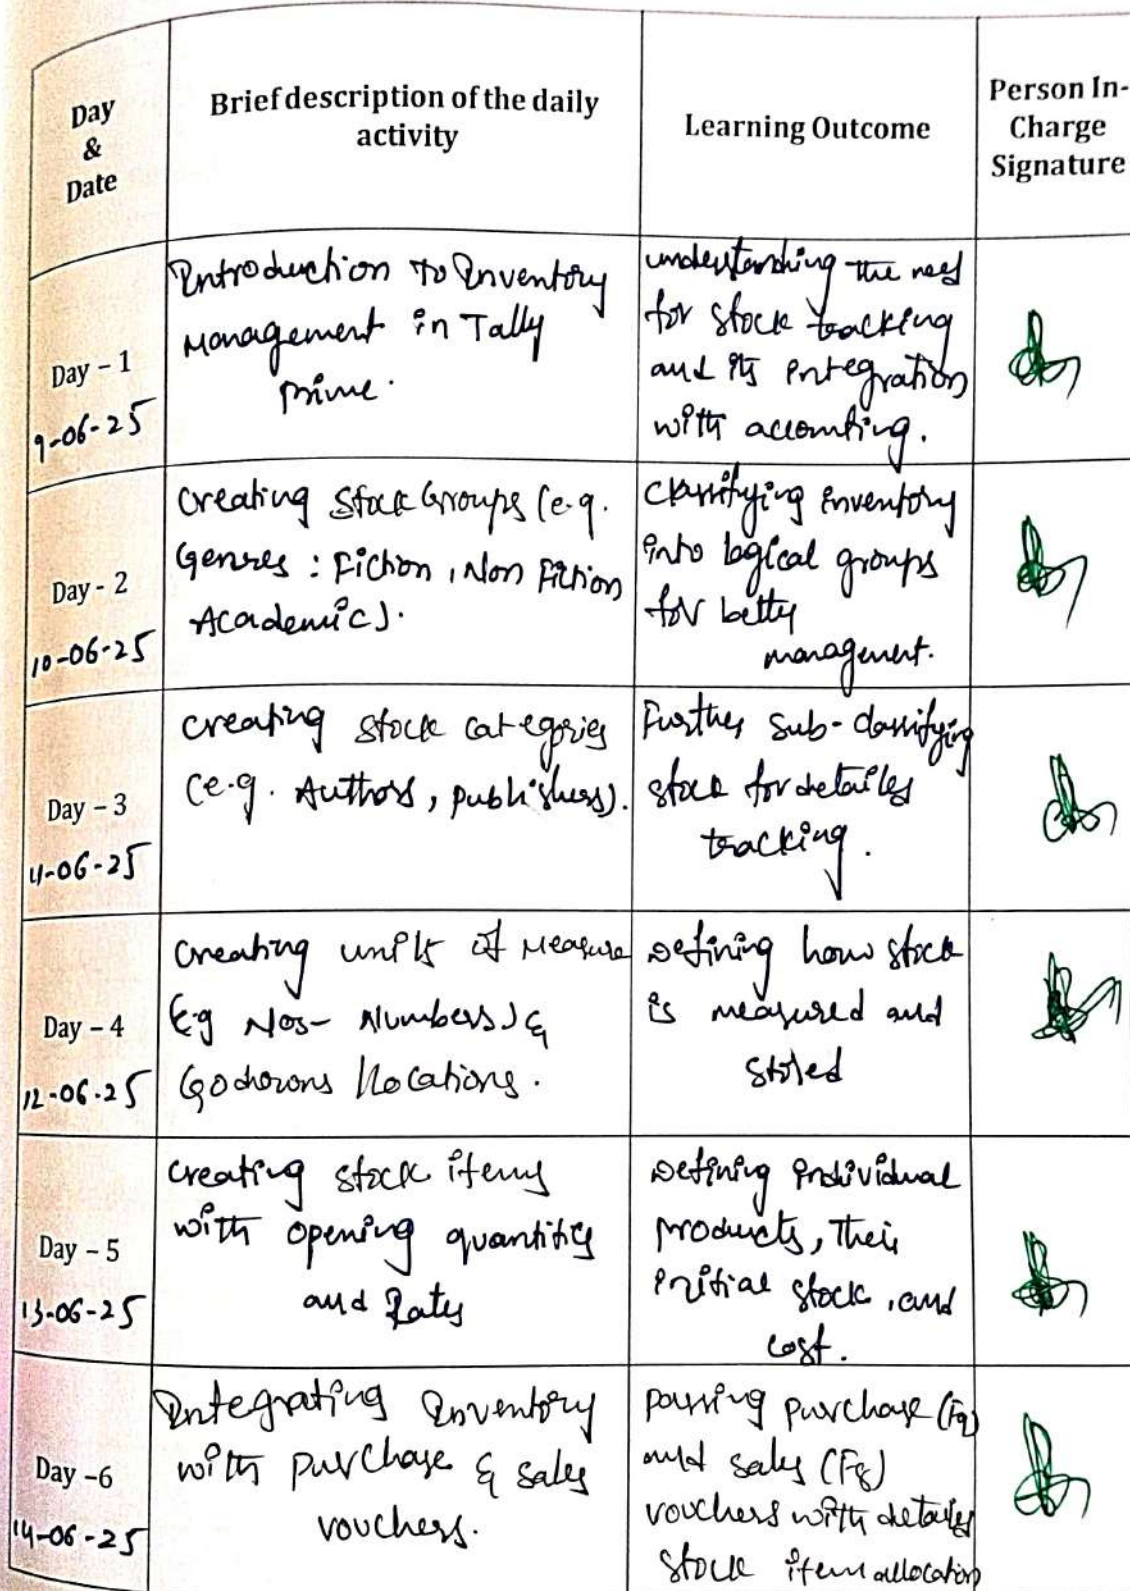 Day
&
Date
Brief description of the daily
activity
Learning Outcome
Person In-
Charge
Signature
Day - 1
9-06-25
Introduction to Inventory
Management in Tally
prime.
understanding the need
for stock tracking
and its integration
with accounting.
Day - 2
10-06-25
Creating Stock Groups (e.g.
Genres : Fiction, Non Fiction
Academic).
Classifying inventory
into logical groups
for better
management.
Day - 3
11-06-25
Creating stock categories
(e.g. Authors, publishers).
Further sub-classifying
stock for detailed
tracking.
Day - 4
12-06-25
Creating units of Measure
E.g Nos- Numbers) &
Godowns /Locations.
Defining how stock
is measured and
stored
Day - 5
13-06-25
Creating stock items
with opening quantities
and Rates
Defining individual
products, Their
initial stock, and
cost.
Day -6
14-06-25
Integrating Inventory
with purchase & sales
vouchers.
passing purchase (F9)
and sales (F8)
vouchers with detailed
stock item allocation